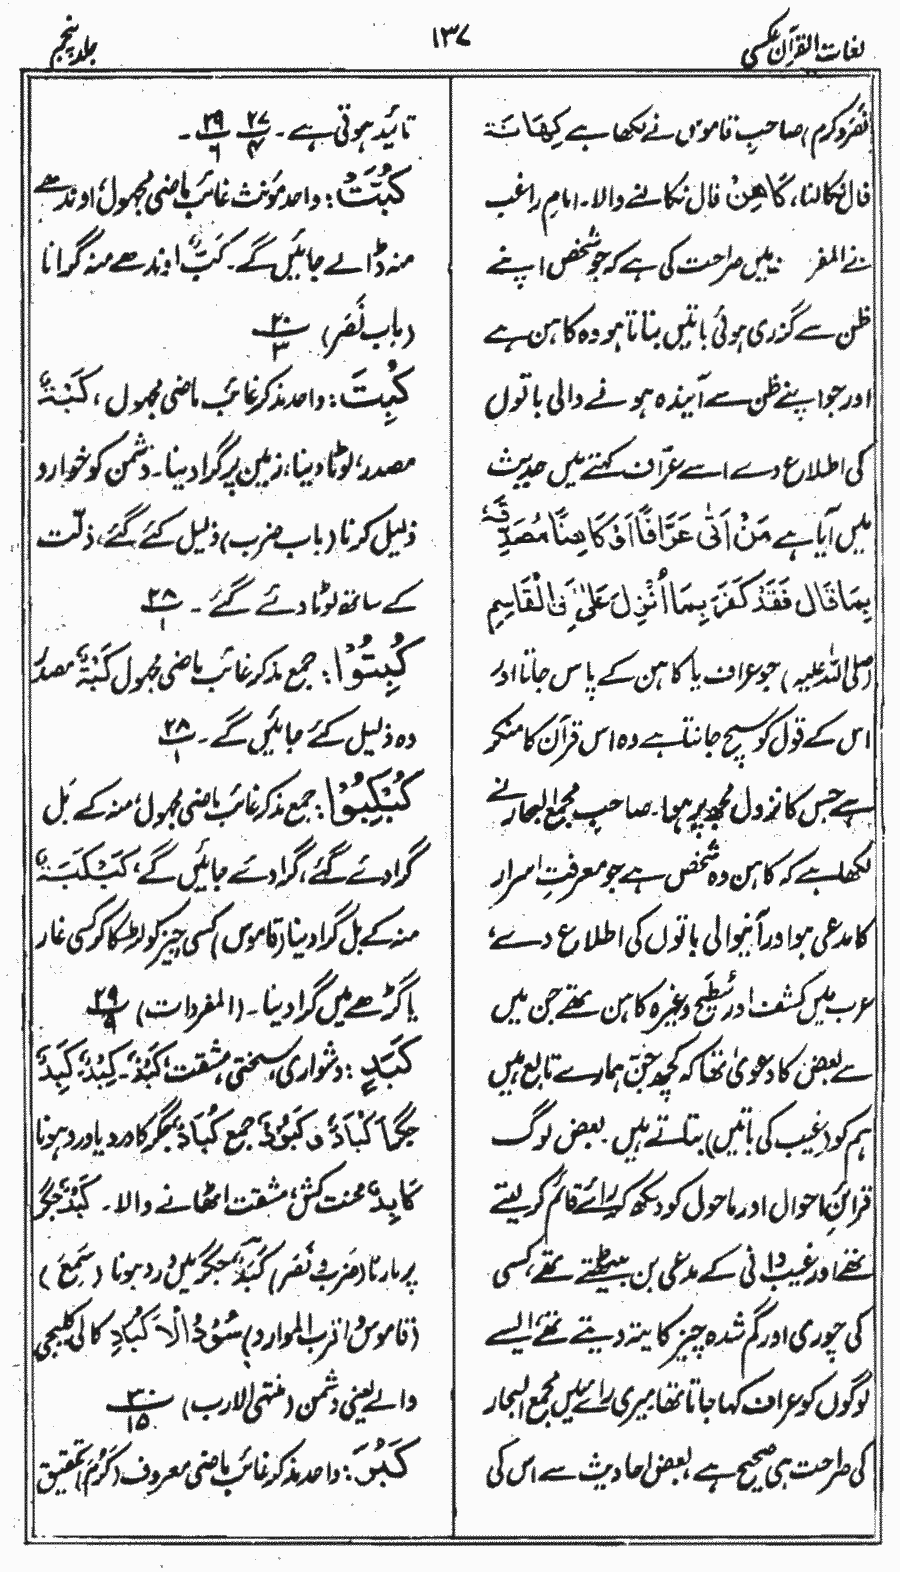 لغات القرآن عکسی
۱۳۷
جلد پنجم
نَصَرَ وکَرُمَ) صاحبِ قاموس نے لکھا ہے کِهَانَۃ
فال نکالنا، کَاهِنٌ فال نکالنے والا۔ امام راغب
نے المفر میں صراحت کی ہے کہ جو شخص اپنے
ظن سے گذری ہوئی باتیں بتاتا ہو وہ کاہن ہے
اور جو اپنے ظن سے آیندہ ہونے والی باتوں
کی اطلاع دے اسے عرّاف کہتے ہیں حدیث
میں آیا ہے مَنْ اَتٰی عَرَّافًا اَوْ کَاهِنًا فَصَدَّقَهٗ
بِمَا قَالَ فَقَدْ کَفَرَ بِمَا اُنْزِلَ عَلٰی اَبِی الْقَاسِمِ
(صلی اللہ علیہ) جو عراف یا کاہن کے پاس جاتا اور
اس کے قول کو سچ جانتا ہے وہ اس قرآن کا منکر
ہے جس کا نزول مجھ پر ہوا۔ صاحب مجمع البحار نے
لکھا ہے کہ کاہن وہ شخص ہے جو معرفتِ اسرار
کا مدعی ہو اور آنیوالی باتوں کی اطلاع دے،
عرب میں کشف اور سُطَیح وغیرہ کاہن تھے جن میں
سے بعض کا دعویٰ تھا کہ کچھ جنّ ہمارے تابع ہیں
ہم کو (غیب کی باتیں) بتاتے ہیں۔ بعض لوگ
قرائنِ احوال اور ماحول کو دیکھ کر رائے قائم کر لیتے
تھے اور غیب دانی کے مدعی بن بیٹھتے تھے، کسی
کی چوری اور گم شدہ چیز کا پتہ دیتے تھے، ایسے
لوگوں کو عراف کہا جاتا تھا میری رائے میں مجمع البحار
کی صراحت ہی صحیح ہے، بعض احادیث سے اس کی
تائید ہوتی ہے۔ ۲۷/۴ ۲۹/۶ ۔
کُبَّتْ: واحد مؤنث غائب ماضی مجہول، اوندھے
منہ ڈالے جائیں گے۔ کَبٌّ اوندھے منہ گرانا
(باب نَصَرَ) ۲۰/۳
کُبِتَ: واحد مذکر غائب ماضی مجہول، کَبْتٌ
مصدر، لوٹا دینا، زمین پر گرا دینا۔ دشمن کو خوار و
ذلیل کرنا (باب ضرب) ذلیل کئے گئے، ذلّت
کے ساتھ لوٹا دئے گئے ۔ ۲۸/۱
کُبِتُوْا: جمع مذکر غائب ماضی مجہول کَبْتٌ مصدر
وہ ذلیل کئے جائیں گے۔ ۲۸/۱
کُبْکِبُوْا: جمع مذکر غائب ماضی مجہول، منہ کے بَل
گرا دئے گئے، گرا دئے جائیں گے، کَبْکَبَۃٌ
منہ کے بل گرا دینا (قاموس) کسی چیز کو لڑھکا کر کسی غار
یا گڑھے میں گرا دینا۔ (المفردات) ۱۹/۹
کَبَدٍ: دشواری، سختی، مشقت، کَبَدٌ۔ کِبْدٌ، کَبِدٌ
جگر اَکْبَادٌ و کُبُوْدٌ جمع کُبَادٌ جگر کا درد یا درد ہونا
کَابِدٌ محنت کش، مشقت اٹھانے والا۔ کَبْدٌ جگر
پر مارنا (ضَرَبَ و نَصَرَ) کَبَدٌ جگر میں درد ہونا (سَمِعَ)
(قاموس و اقرب الموارد) سُوْدُ الْاَکْبَادِ کالی کلیجی
والے یعنی دشمن (منتہی الارب) ۳۰/۱۵
کَبُرَ: واحد مذکر غائب ماضی معروف (کَرُمَ) تحقیق